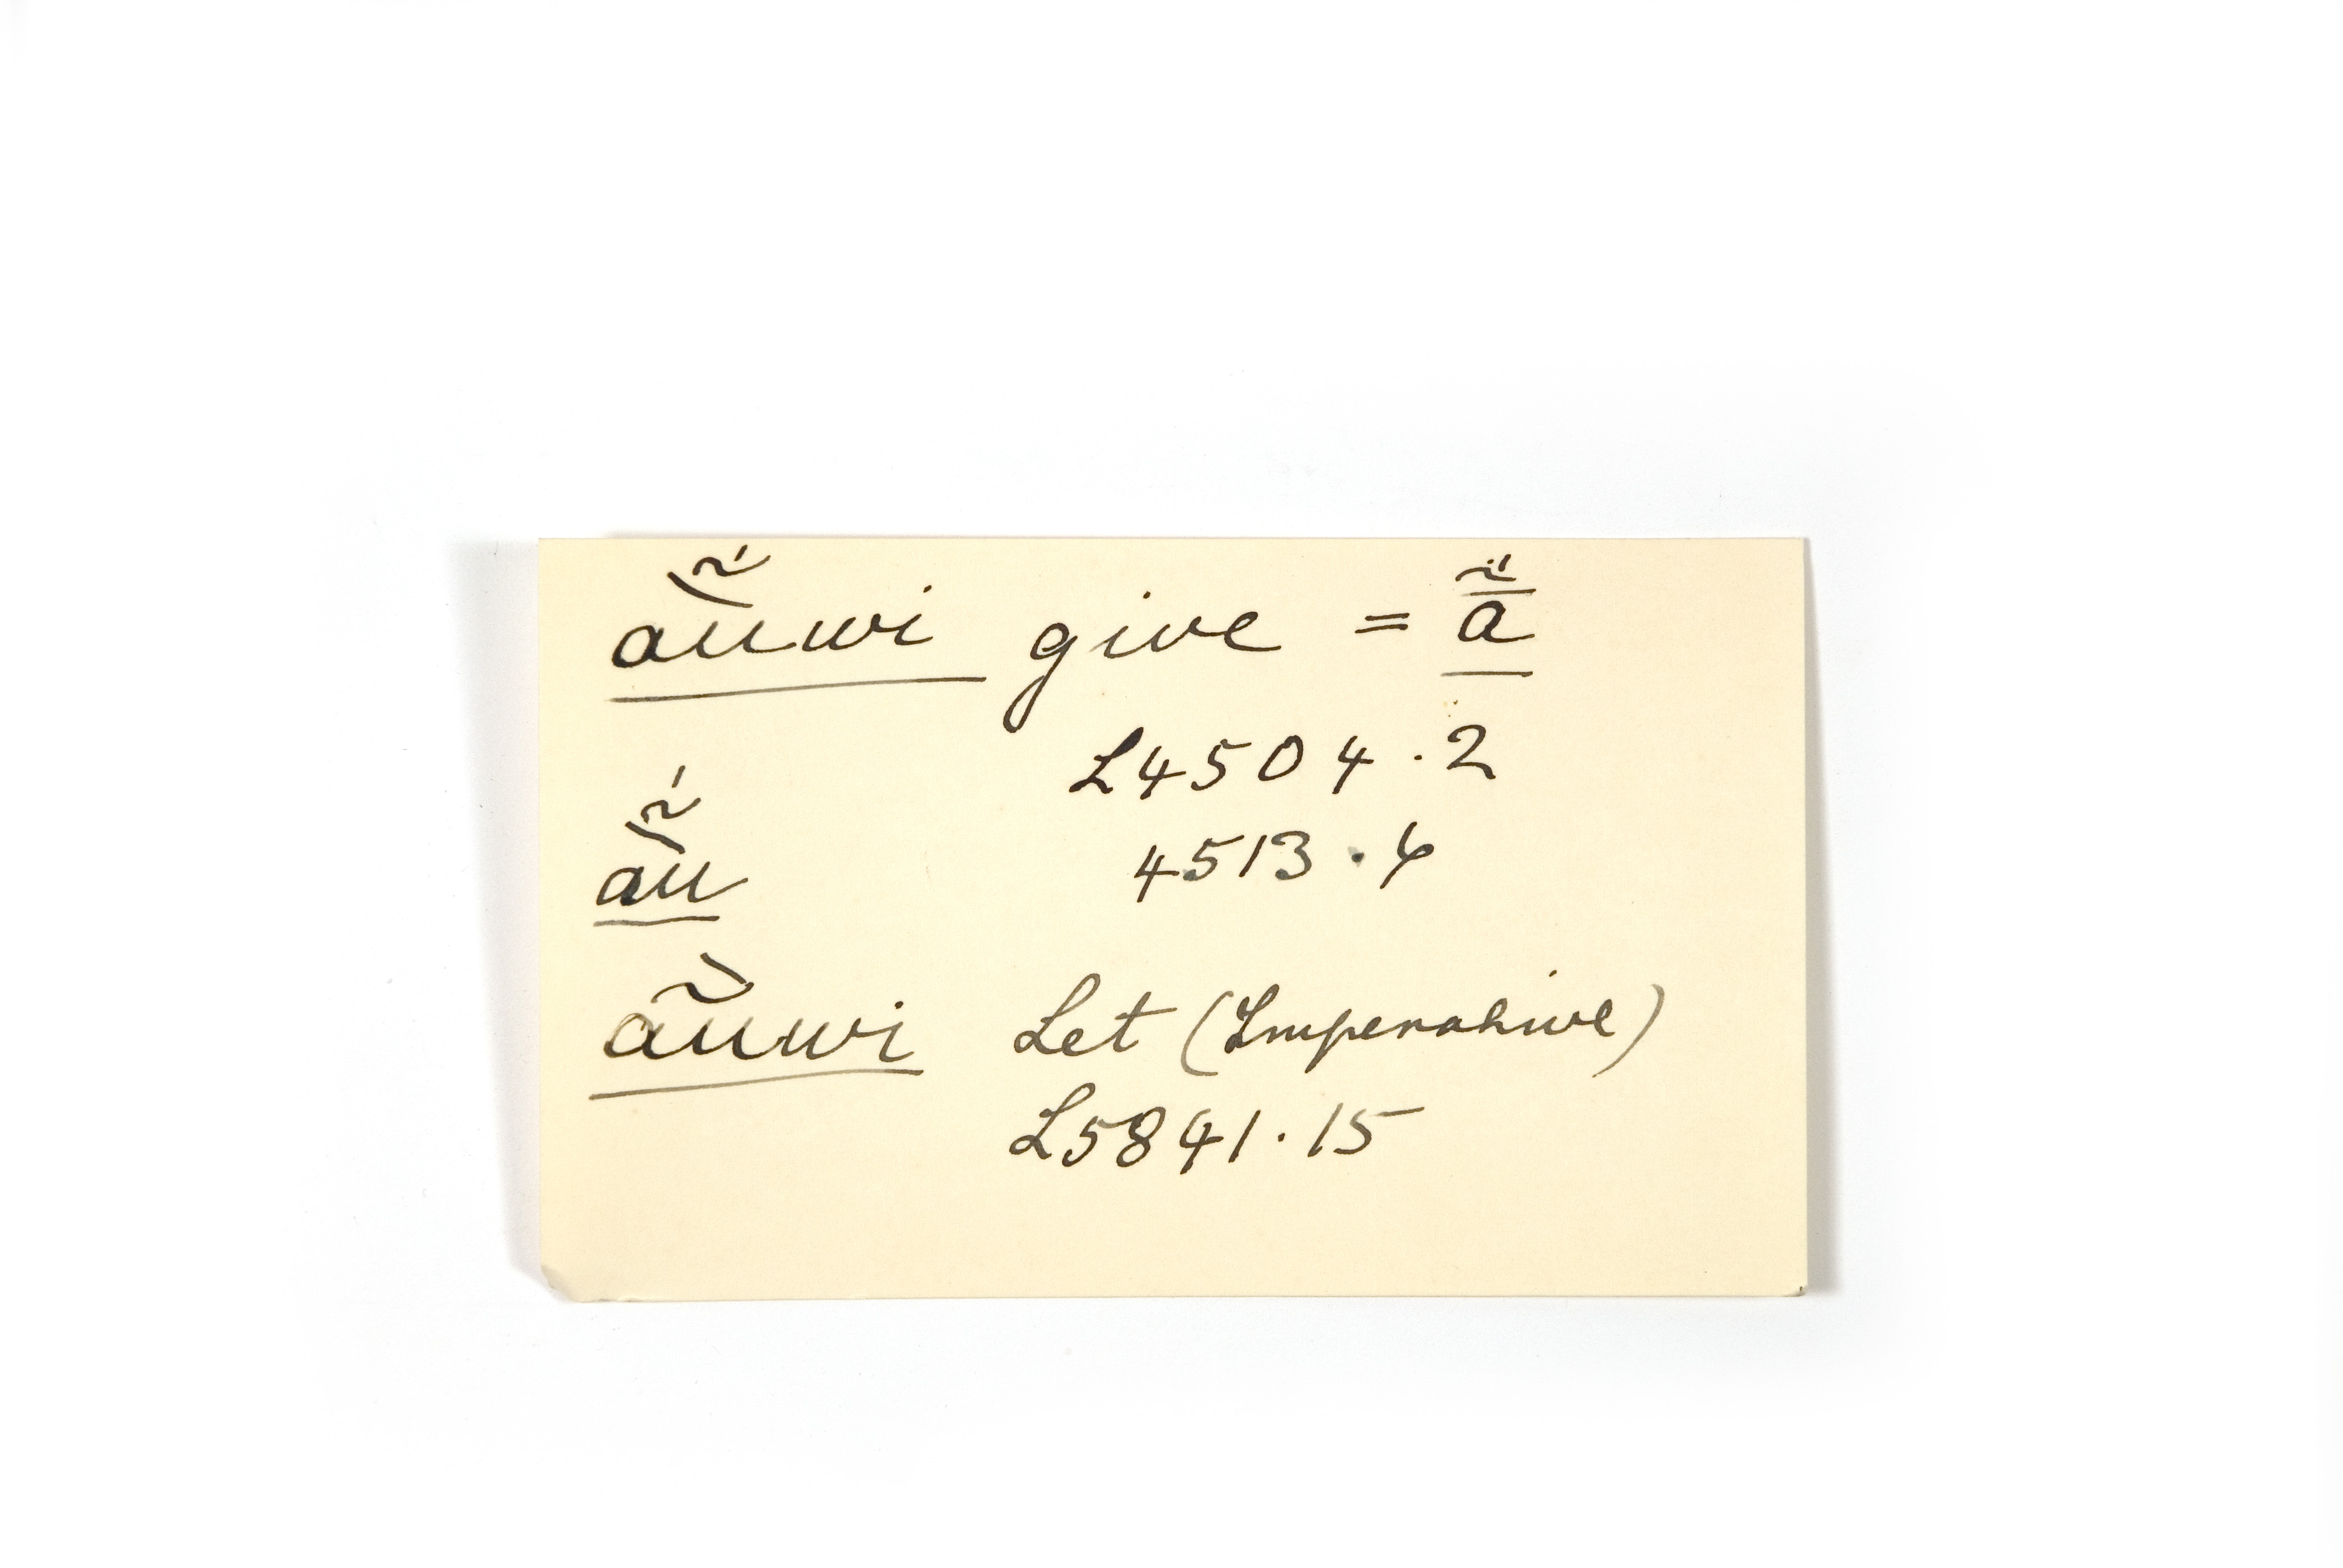 aũ̀́wi give = ā̰̃́
L4504.2
4513.6
aũ̀́
ãùwi Let (Imperative)
L5841.15